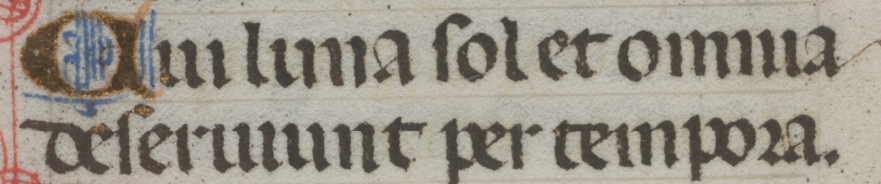 Cui luna sol et omnia
deseruiunt per tempora.